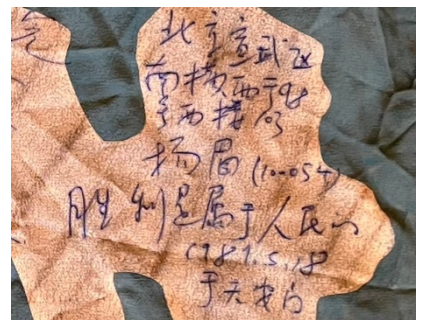 气
北京宣武区
南横西街
杨眉 (100054)
胜利是属于人民的
1989.5.18
于天安门